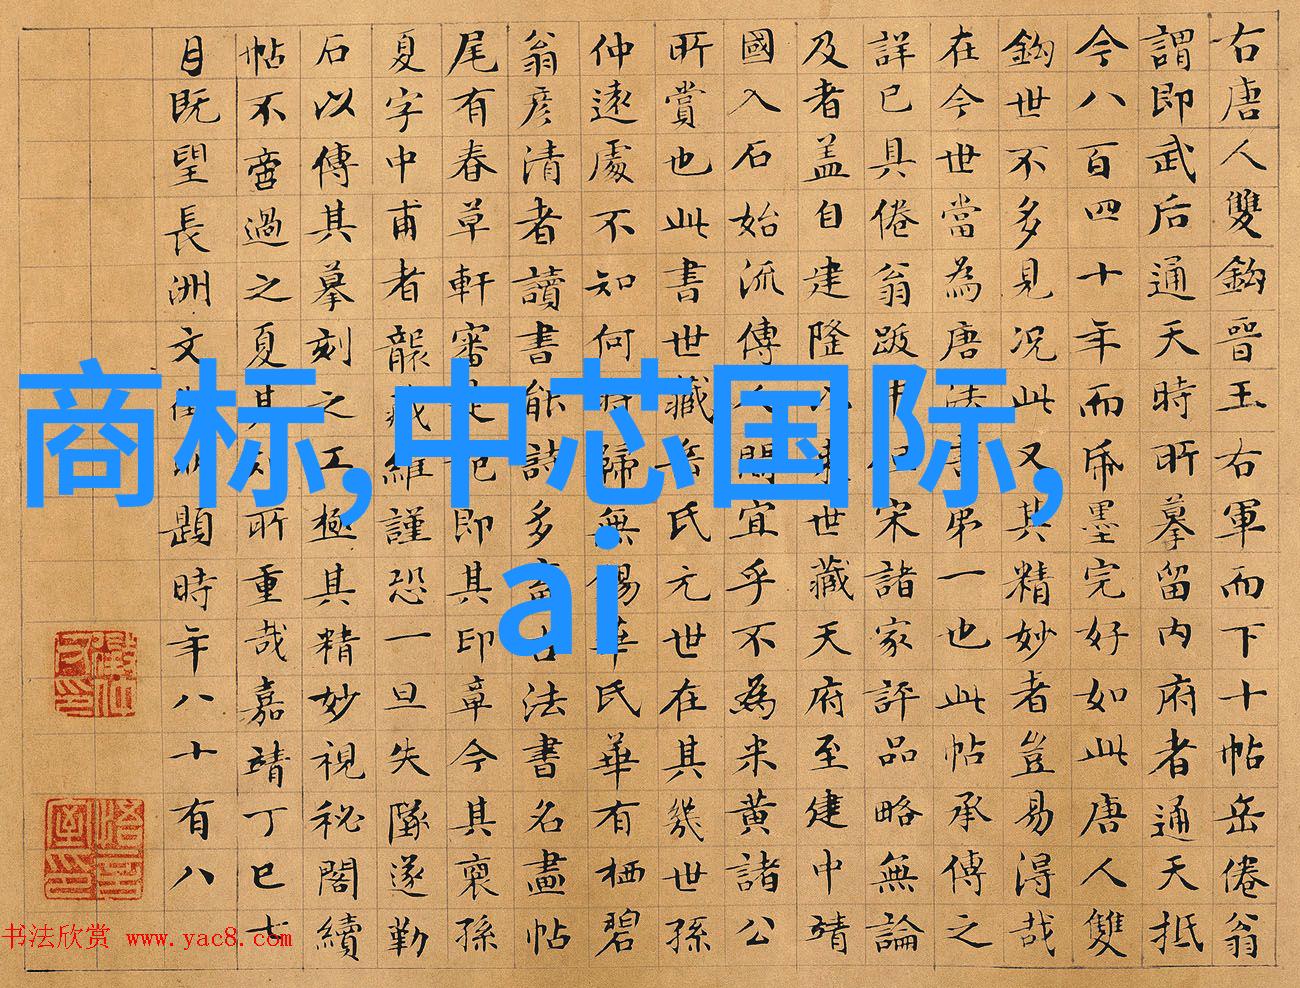 右唐人雙鈎晉王右軍而下十帖岳倦翁
謂即武后通天時所摹留內府者通天抵
今八百四十年而紙墨完好如此唐人雙
鈎世不多見況此又其精妙者豈易得哉
在今世當為唐法書弟一也此帖承傳之
詳已具倦翁跋中但宋諸家評品略無論
及者蓋自建隆以來世藏天府至建中靖
國入石始流傳人間宜乎不為米黃諸公
所賞也此書世藏岳氏元世在其幾世孫
仲遠處不知何時歸無錫華氏華有栖碧
翁彥清者讀書能詩多蓄古法書名畫帖
尾有春草軒審定記即其印章今其裔孫
夏字中甫者襲藏維謹恐一旦失墜遂勒
石以傳其摹刻之工極其精妙視秘閣續
帖不啻過之夏其知所重哉嘉靖丁巳七
月既望長洲文徵明題時年八十有八
商标,中芯国际,
ai
书法欣赏 www.yac8.com